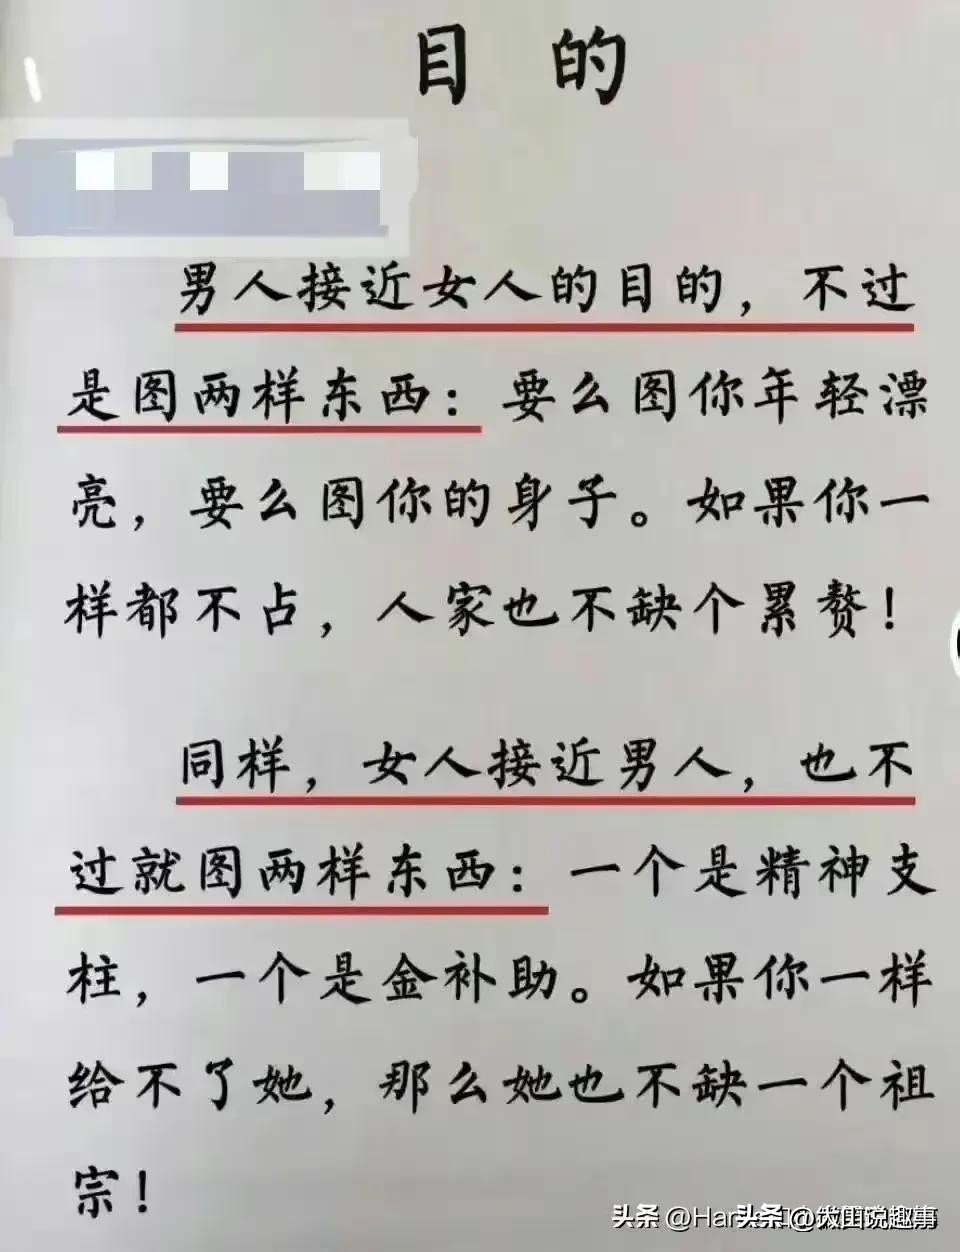 目的
男人接近女人的目的，不过
是图两样东西：要么图你年轻漂
亮，要么图你的身子。如果你一
样都不占，人家也不缺个累赘！
同样，女人接近男人，也不
过就图两样东西：一个是精神支
柱，一个是金补助。如果你一样
给不了她，那么她也不缺一个祖
宗！
头条 @Har 头条 @大田说趣事